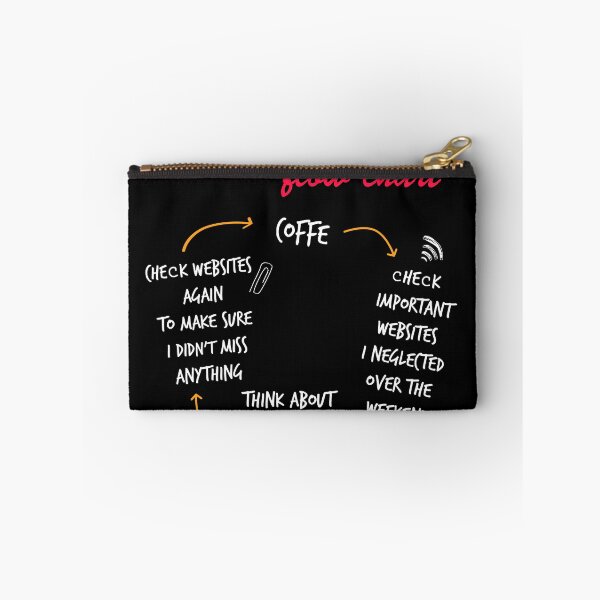 flow chart
COFFE
CHECK WEBSITES
AGAIN
TO MAKE SURE
I DIDN'T MISS
ANYTHING
CHECK
IMPORTANT
WEBSITES
I NEGLECTED
OVER THE
WEEKEND
THINK ABOUT